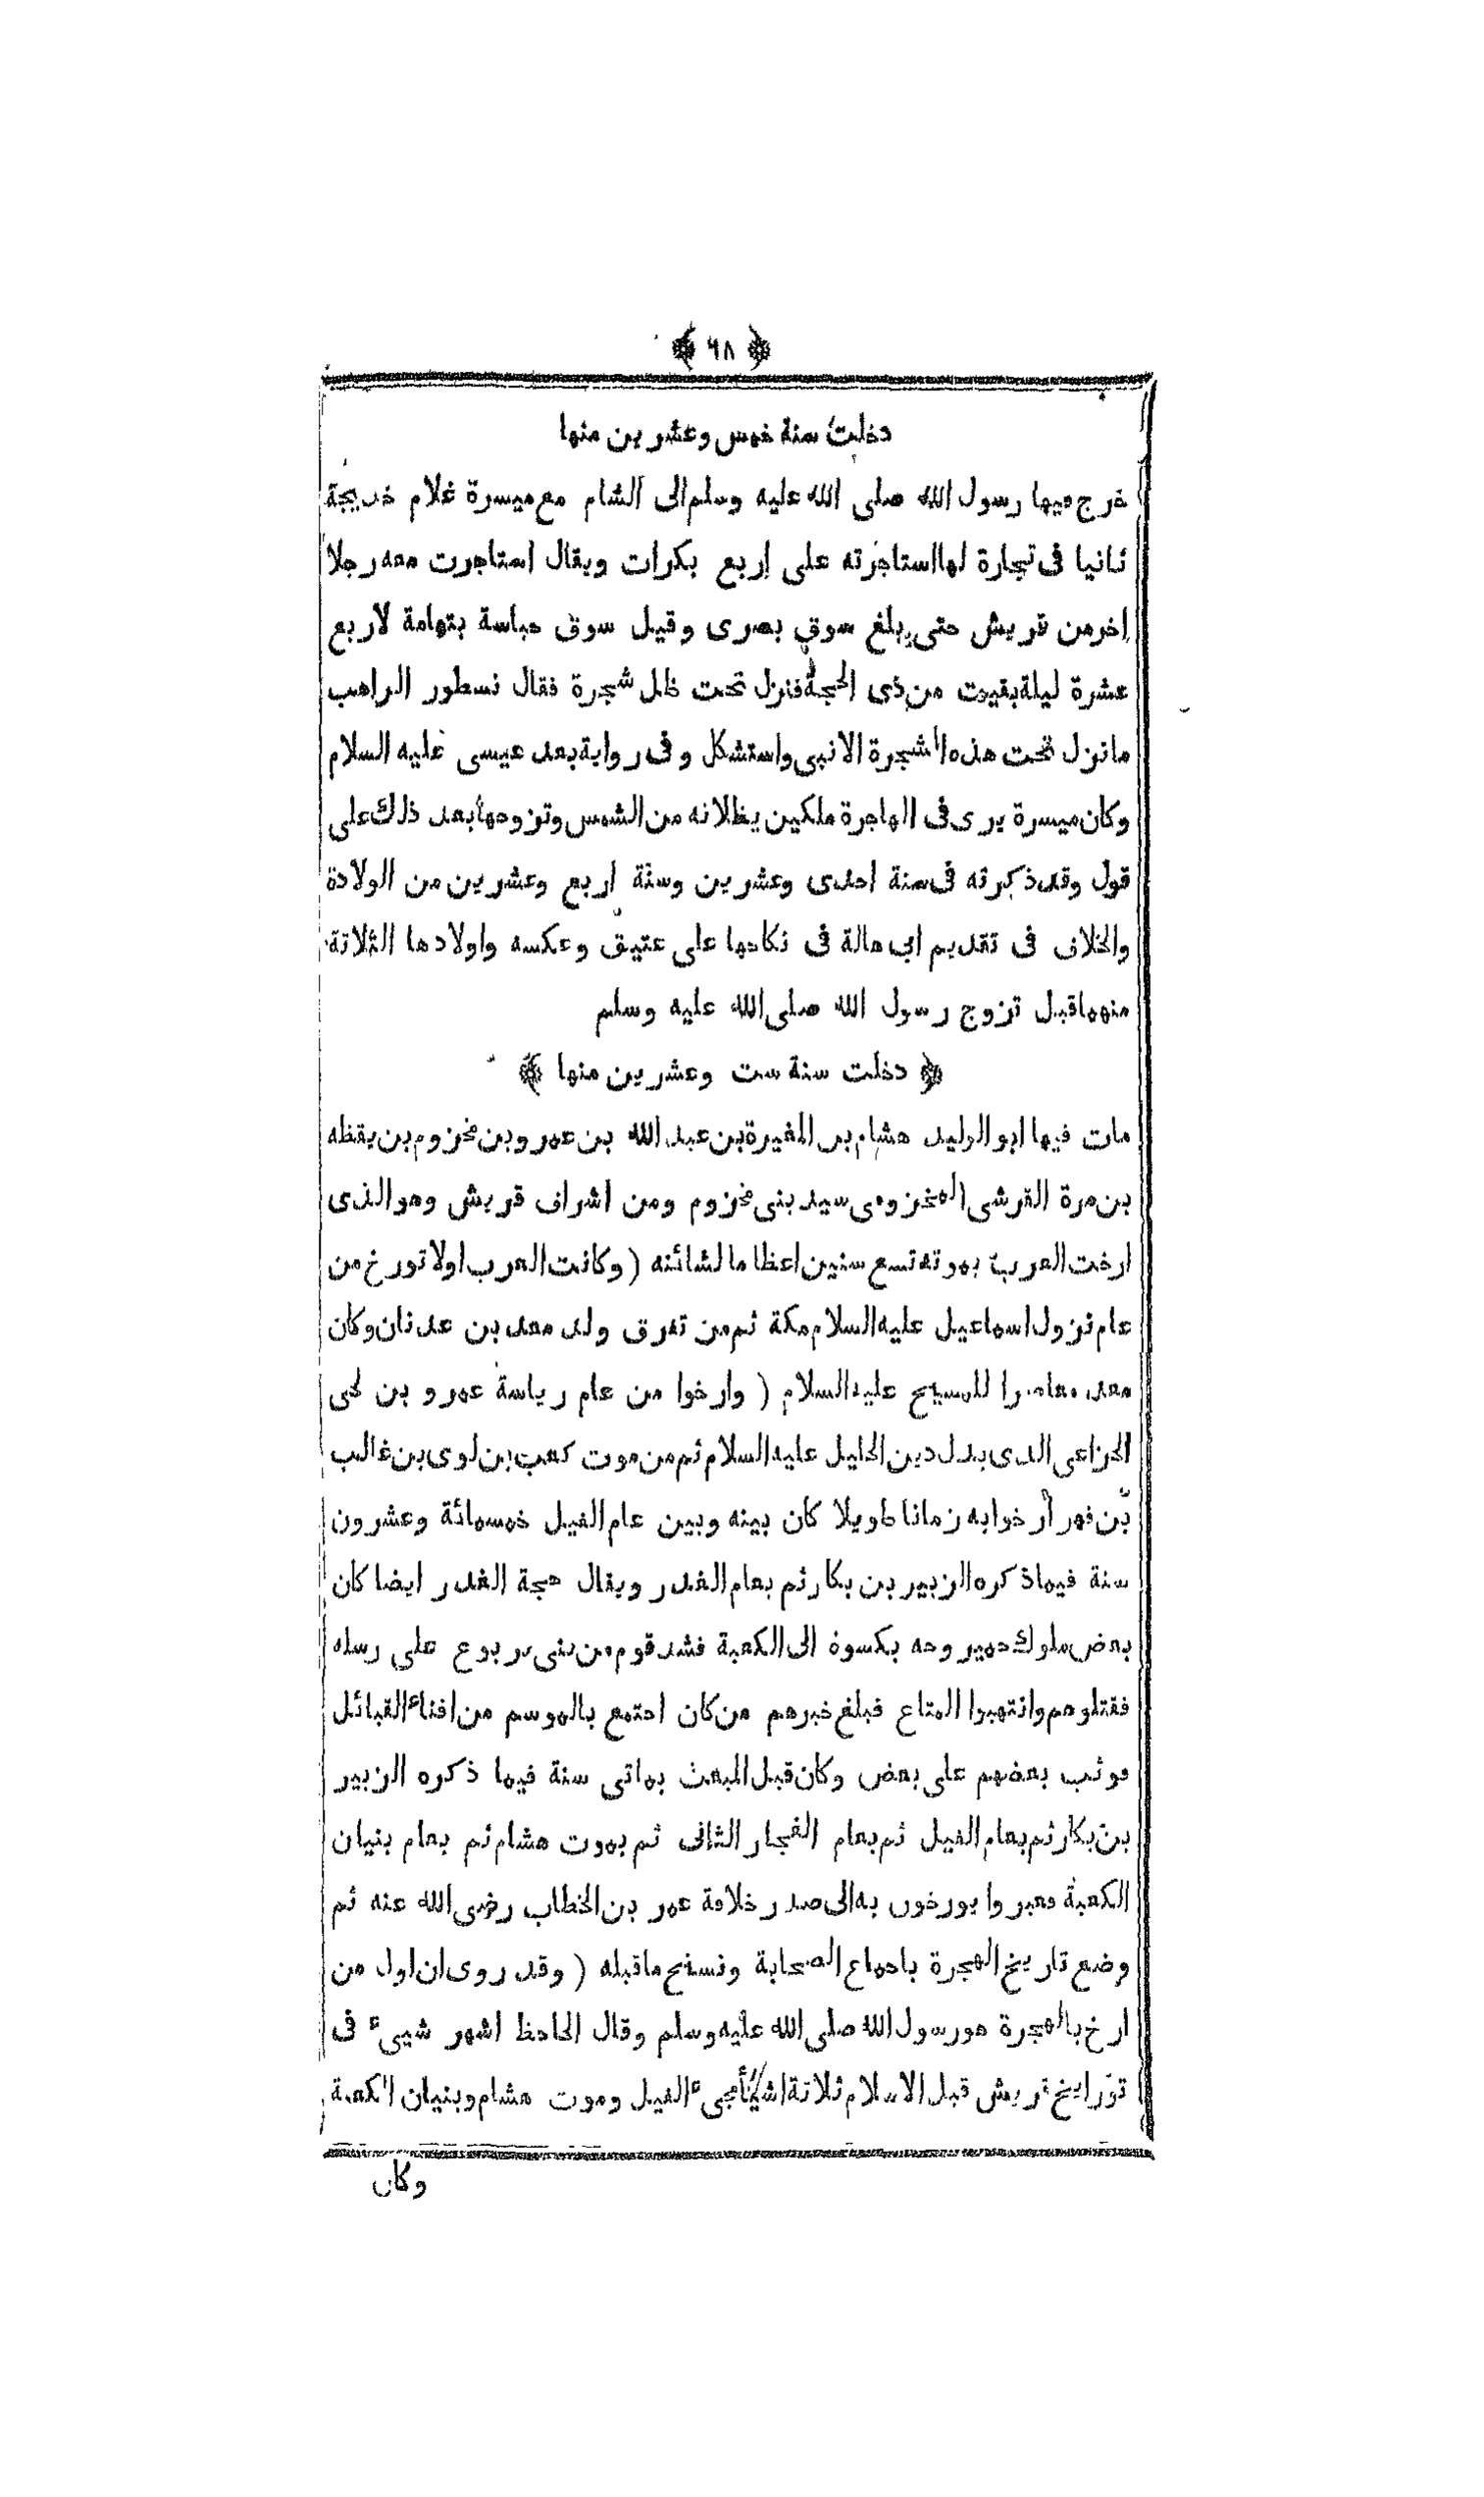 ﴿ ٦٨ ﴾
دخلت سنة خمس وعشرين منها
خرج فيها رسول الله صلى الله عليه وسلم الى الشام مع ميسرة غلام خديجة
ثانيا فى تجارة لها استاجرته على اربع بكرات ويقال استاجرت معه رجلا
اخر من قريش حتى بلغ سوق بصرى وقيل سوق حباسة بتهامة لاربع
عشرة ليلة بقيت من ذى الحجة فنزل تحت ظل شجرة فقال نسطور الراهب
مانزل تحت هذه الشجرة الا نبى واستشكل وفى رواية بعد عيسى عليه السلام
وكان ميسرة يرى فى الهاجرة ملكين يظلانه من الشمس وتزوجها بعد ذلك على
قول وقد ذكرته فى سنة احدى وعشرين وسنة اربع وعشرين من الولادة
والخلاف فى تقديم ابى هالة فى نكاحها على عتيق وعكسه واولادها الثلاثة
منهما قبل تزوج رسول الله صلى الله عليه وسلم
﴿ دخلت سنة ست وعشرين منها ﴾
مات فيها ابو الوليد هشام بن المغيرة بن عبد الله بن عمرو بن مخزوم بن يقظه
بن مرة القرشى المخزومى سيد بنى مخزوم ومن اشراف قريش وهو الذى
ارخت العرب بموته تسع سنين اعظاما لشائنه ( وكانت العرب اولا تورخ من
عام نزول اسماعيل عليه السلام مكة ثم من تفرق ولد معد بن عدنان وكان
معد معاصرا للمسيح عليه السلام ( وارخوا من عام رياسة عمرو بن لحى
الخزاعى الذى بدل دين الخليل عليه السلام ثم من موت كعب بن لوى بن غالب
بن فهر أرخوا به زمانا طويلا كان بينه وبين عام الفيل خمسمائة وعشرون
سنة فيما ذكره الزبير بن بكار ثم بعام الغدر ويقال حجة الغدر ايضا كان
بعض ملوك حمير وجه بكسوة الى الكعبة فشد قوم من بنى يربوع على رسله
فقتلوهم وانتهبوا المتاع فبلغ خبرهم من كان اجتمع بالموسم من افناء القبائل
فوثب بعضهم على بعض وكان قبل المبعث بماتى سنة فيما ذكره الزبير
بن بكار ثم بعام الفيل ثم بعام الفجار الثانى ثم بموت هشام ثم بعام بنيان
الكعبة فعبروا يورخون به الى صدر خلافة عمر بن الخطاب رضى الله عنه ثم
وضع تاريخ الهجرة باجماع الصحابة ونسخ ماقبله ( وقد روى ان اول من
ارخ بالهجرة هو رسول الله صلى الله عليه وسلم وقال الحافظ اشهر شيىء فى
تورايخ قريش قبل الاسلام ثلاثة اشيأ مجىء الفيل وموت هشام وبنيان الكعبة
وكان